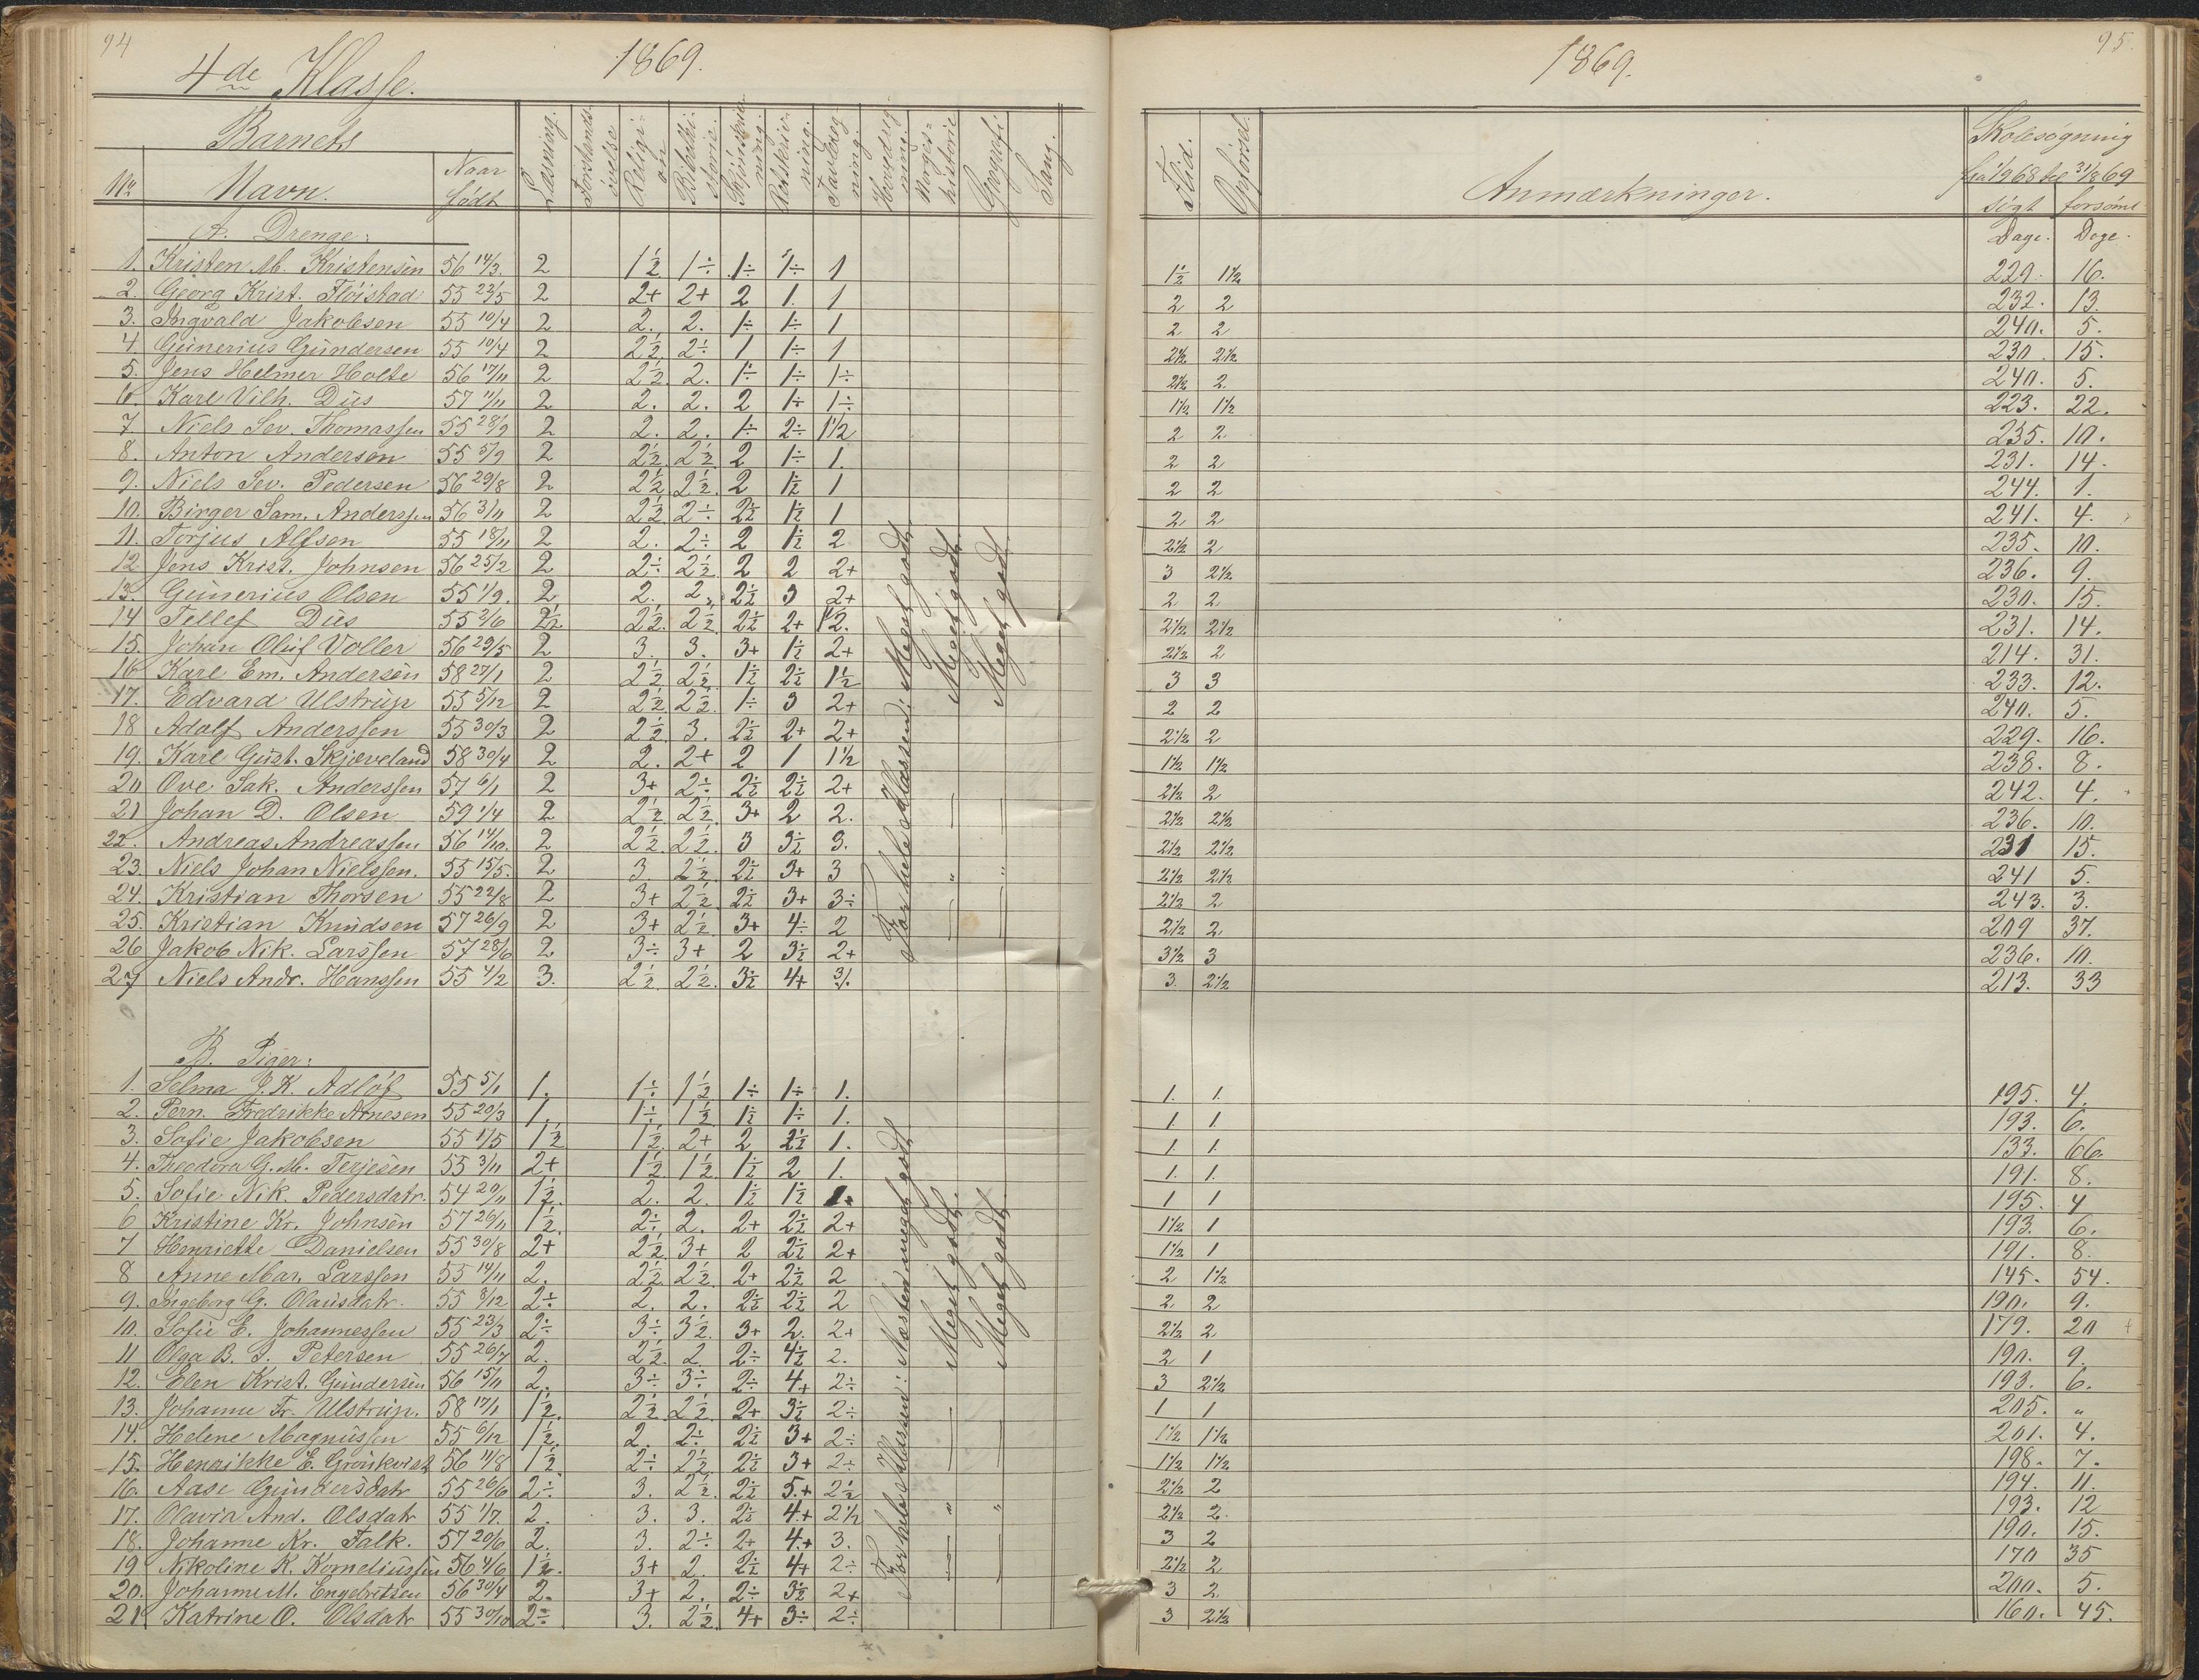 94
4de Klasse. 1869.
Barnets
No Navn. Naar født Læsning. Forstands øvelse Religion Bibelhistorie. Skjønskrivning. Retskrivning. Tavleregning. Hovedregning. Norgeshistorie Geografi. Sang.
A. Drenge:
1. Kristen M. Kristensen 56 14/3. 2 1½ 1÷ 1÷ 1÷ 1
2. Georg Krist. Fløistad 55 23/5 2 2+ 2+ 2 1. 1
3. Ingvald Jakobsen 55 10/4 2 2. 2. 1÷ 1÷ 1
4. Gunerius Gundersen 55 10/4 2 2½ 2÷ 1 1÷ 1
5. Jens Helmer Holte 56 17/11 2 2½ 2. 1÷ 1÷ 1÷
6. Karl Vilh. Dus 57 11/11 2 2. 2. 2 1÷ 1÷
7 Niels Sev. Thomassen 55 28/9 2 2. 2. 1÷ 2÷ 1½
8. Anton Andersen 55 5/9 2 2½ 2½ 2 1÷ 1.
9. Niels Sev. Pedersen 56 29/8 2 2½ 2½ 2 1½ 1
10. Birger Sam. Anderssen 56 3/11 2 2½ 2÷ 2½ 1½ 1
11. Torjus Alfsen 55 18/11 2 2. 2÷ 2 1½ 2
12 Jens Krist. Johnsen 56 25/2 2 2÷ 2½ 2 2 2+
13. Gunerius Olsen 55 1/9. 2 2. 2. 2½ 3 2+
14 Tellef Dus 55 2/6 2½ 2½ 2½ 2½ 2+ 2.
15. Johan Oluf Voller 56 29/5 2 3. 3. 3+ 1½ 2+
16 Karl Em. Andersen 58 27/1 2 2½ 2½ 1½ 2½ 1½
17. Edvard Ulstrup 55 5/12 2 2½ 2½ 1÷ 3 2+
18 Adolf Anderssen 55 30/3 2 2½ 3. 2½ 2+ 2+
19. Karl Gust. Skjæveland 58 30/4 2 2. 2+ 2 1 1½
20 Ove Sak. Anderssen 57 6/1 2 3+ 2÷ 2½ 2½ 2+
21 Johan D. Olsen 59 1/4 2 2½ 2½ 3+ 2 2.
22. Andreas Andreassen 56 14/10. 2 2½ 2½ 3 3½ 3.
23. Niels Johan Nielssen. 55 15/5. 2 3. 2½ 2½ 3+ 3
24. Kristian Thorsen 55 22/8 2 3+ 2½ 2½ 3+ 3÷
25. Kristian Knudsen 57 26/9 2 3+ 2½ 3+ 4÷ 2
26 Jakob Nik. Larssen 57 28/6 2 3÷ 3+ 2 3½ 2+
27 Niels Andr. Hanssen 55 4/2 3. 2½ 2½ 3½ 4+ 3/.
For hele Klassen: Meget godt.
— „ — Meget godt.
— „ — Meget godt.
B. Piger:
1. Selma J. K. Adløf 55 5/1 1. 1÷ 1½ 1÷ 1÷ 1.
2. Pern. Fredrikke Arnesen 55 20/3 1. 1÷ 1½ 1½ 1÷ 1.
3. Sofie Jakobsen 55 1/5 1½ 1½ 2+ 2 2½ 1.
4. Theodora G. M. Terjesen 55 3/11 2+ 1½ 1½ 1½ 2 1.
5. Sofie Nik. Pedersdatr. 54 20/11 1½. 2. 2 1½ 1½ 1.
6 Kristine Kr. Johnsen 57 26/11 1½. 2÷ 2. 2+ 2½ 2+
7 Henriette Danielsen 55 30/8 2+ 2½ 3+ 2 2½ 2+
8 Anne Mar. Larssen 55 14/11 2. 2½ 2½ 2+ 2½ 2
9. Ingeborg G. Olausdatr. 55 8/12 2÷ 2. 2. 2½ 2½ 2
10. Sofie E. Johannessen 55 23/3 2÷ 3÷ 3½ 3+ 2. 2+
11 Olga B. S. Petersen 55 26/7 2. 2½ 2 2÷ 4½ 2.
12. Elen Krist. Gundersen 56 15/11 2. 3÷ 3÷ 2÷ 4+ 2÷
13. Johanne Fr. Ulstrup. 58 17/1 1½. 2½ 2½ 2+ 3½ 2÷
14. Helene Magnussen 55 6/12 1½. 2. 2÷ 2½ 3+ 2÷
15. Henrikke E. Grønkvist 56 11/8 1½ 2÷ 2½ 2½ 3+ 2÷
16. Aase Gunnersdatr 55 26/6 2÷ 3. 2½ 2½ 5.+ 2½
17. Olavia And. Olsdatr 55 1/7. 2. 3. 3. 2½ 4.+ 2½
18. Johanne Kr. Falk. 57 20/6 2. 3. 2÷ 2+ 4.+ 3.
19 Nikoline K. Korneliussen 56 4/6 1½. 3+ 2. 2½ 4+ 2÷
20. Johanne M. Engebretsen 56 30/4 2. 3+ 2. 2÷ 3½ 2+
21 Katrine O. Olsdatr 55 30/10 2÷ 3. 2½ 4+ 3÷ 2÷
For hele Klassen: Næsten meget godt
— „ — Meget godt.
— „ — Meget godt.
95.
1869.
Flid. Opførsel. Anmærkninger. Skolesøgning
fra 1/9 68 til 31/8 69
søgt forsømt
Dage. Dage.
1½ 1½ 229. 16.
2 2 232. 13.
2 2 240. 5.
2½ 2½ 230. 15.
2½ 2. 240. 5.
1½ 1½ 223. 22.
2 2. 235. 10.
2 2 231. 14.
2 2 244. 1.
2 2 241. 4.
2½ 2 235. 10.
3 2½ 236. 9.
2 2 230. 15.
2½ 2½ 231. 14.
2½ 2 214. 31.
3 3 233. 12.
2 2 240. 5.
2½ 2 229. 16.
1½ 1½ 238. 8.
2½ 2 242. 4.
2½ 2½ 236. 10.
2½ 2½ 231 15.
2½ 2½ 241 5.
2½ 2 243. 3.
2½ 2 209 37.
3½ 3 236. 10.
3. 2½ 213. 33
1. 1. 195. 4.
1. 1. 193. 6.
1. 1. 133. 66.
1. 1. 191. 8.
1 1 195. 4
1½ 1 193. 6.
1½ 1 191. 8.
2 1½ 145. 54.
2 2 190. 9.
2½ 2 179. 20 +
2 1 190. 9.
3 2½ 193. 6.
1 1 205. „
1½ 1½ 201. 4.
1½ 1½ 198. 7.
2½ 2 194. 11.
2½ 2. 193. 12
3 2 190. 15.
2½ 2 170 35
3 2 200. 5.
3 2½ 160. 45.